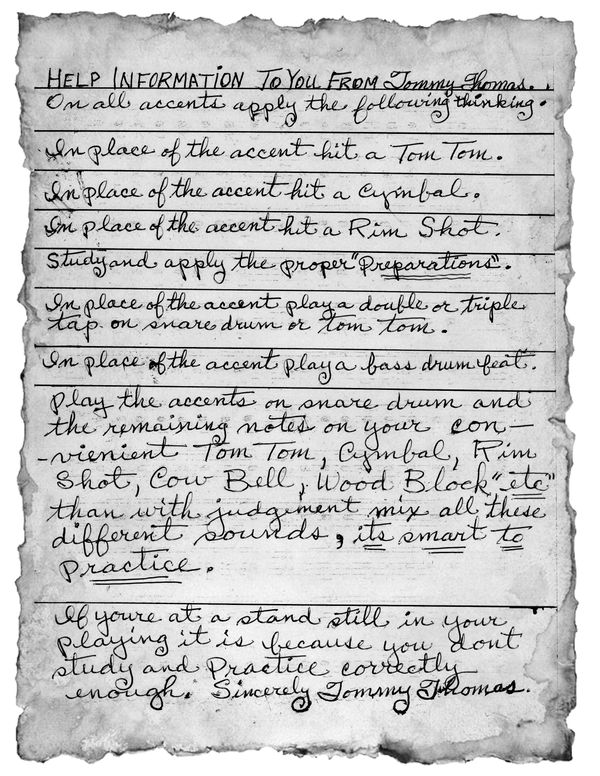 HELP INFORMATION TO YOU FROM Tommy Thomas.
On all accents apply the following thinking.
In place of the accent hit a Tom Tom.
In place of the accent hit a Cymbal.
In place of the accent hit a Rim Shot.
Study and apply the proper "Preparations".
In place of the accent play a double or triple
tap on snare drum or tom tom.
In place of the accent play a bass drum feat.
Play the accents on snare drum and
the remaining notes on your con-
-vienient Tom Tom, Cymbal, Rim
Shot, Cow Bell, Wood Block "etc"
than with judgement mix all these
different sounds, its smart to
Practice.
If youre at a stand still in your
playing it is because you dont
study and Practice correctly
enough. Sincerely Tommy Thomas.